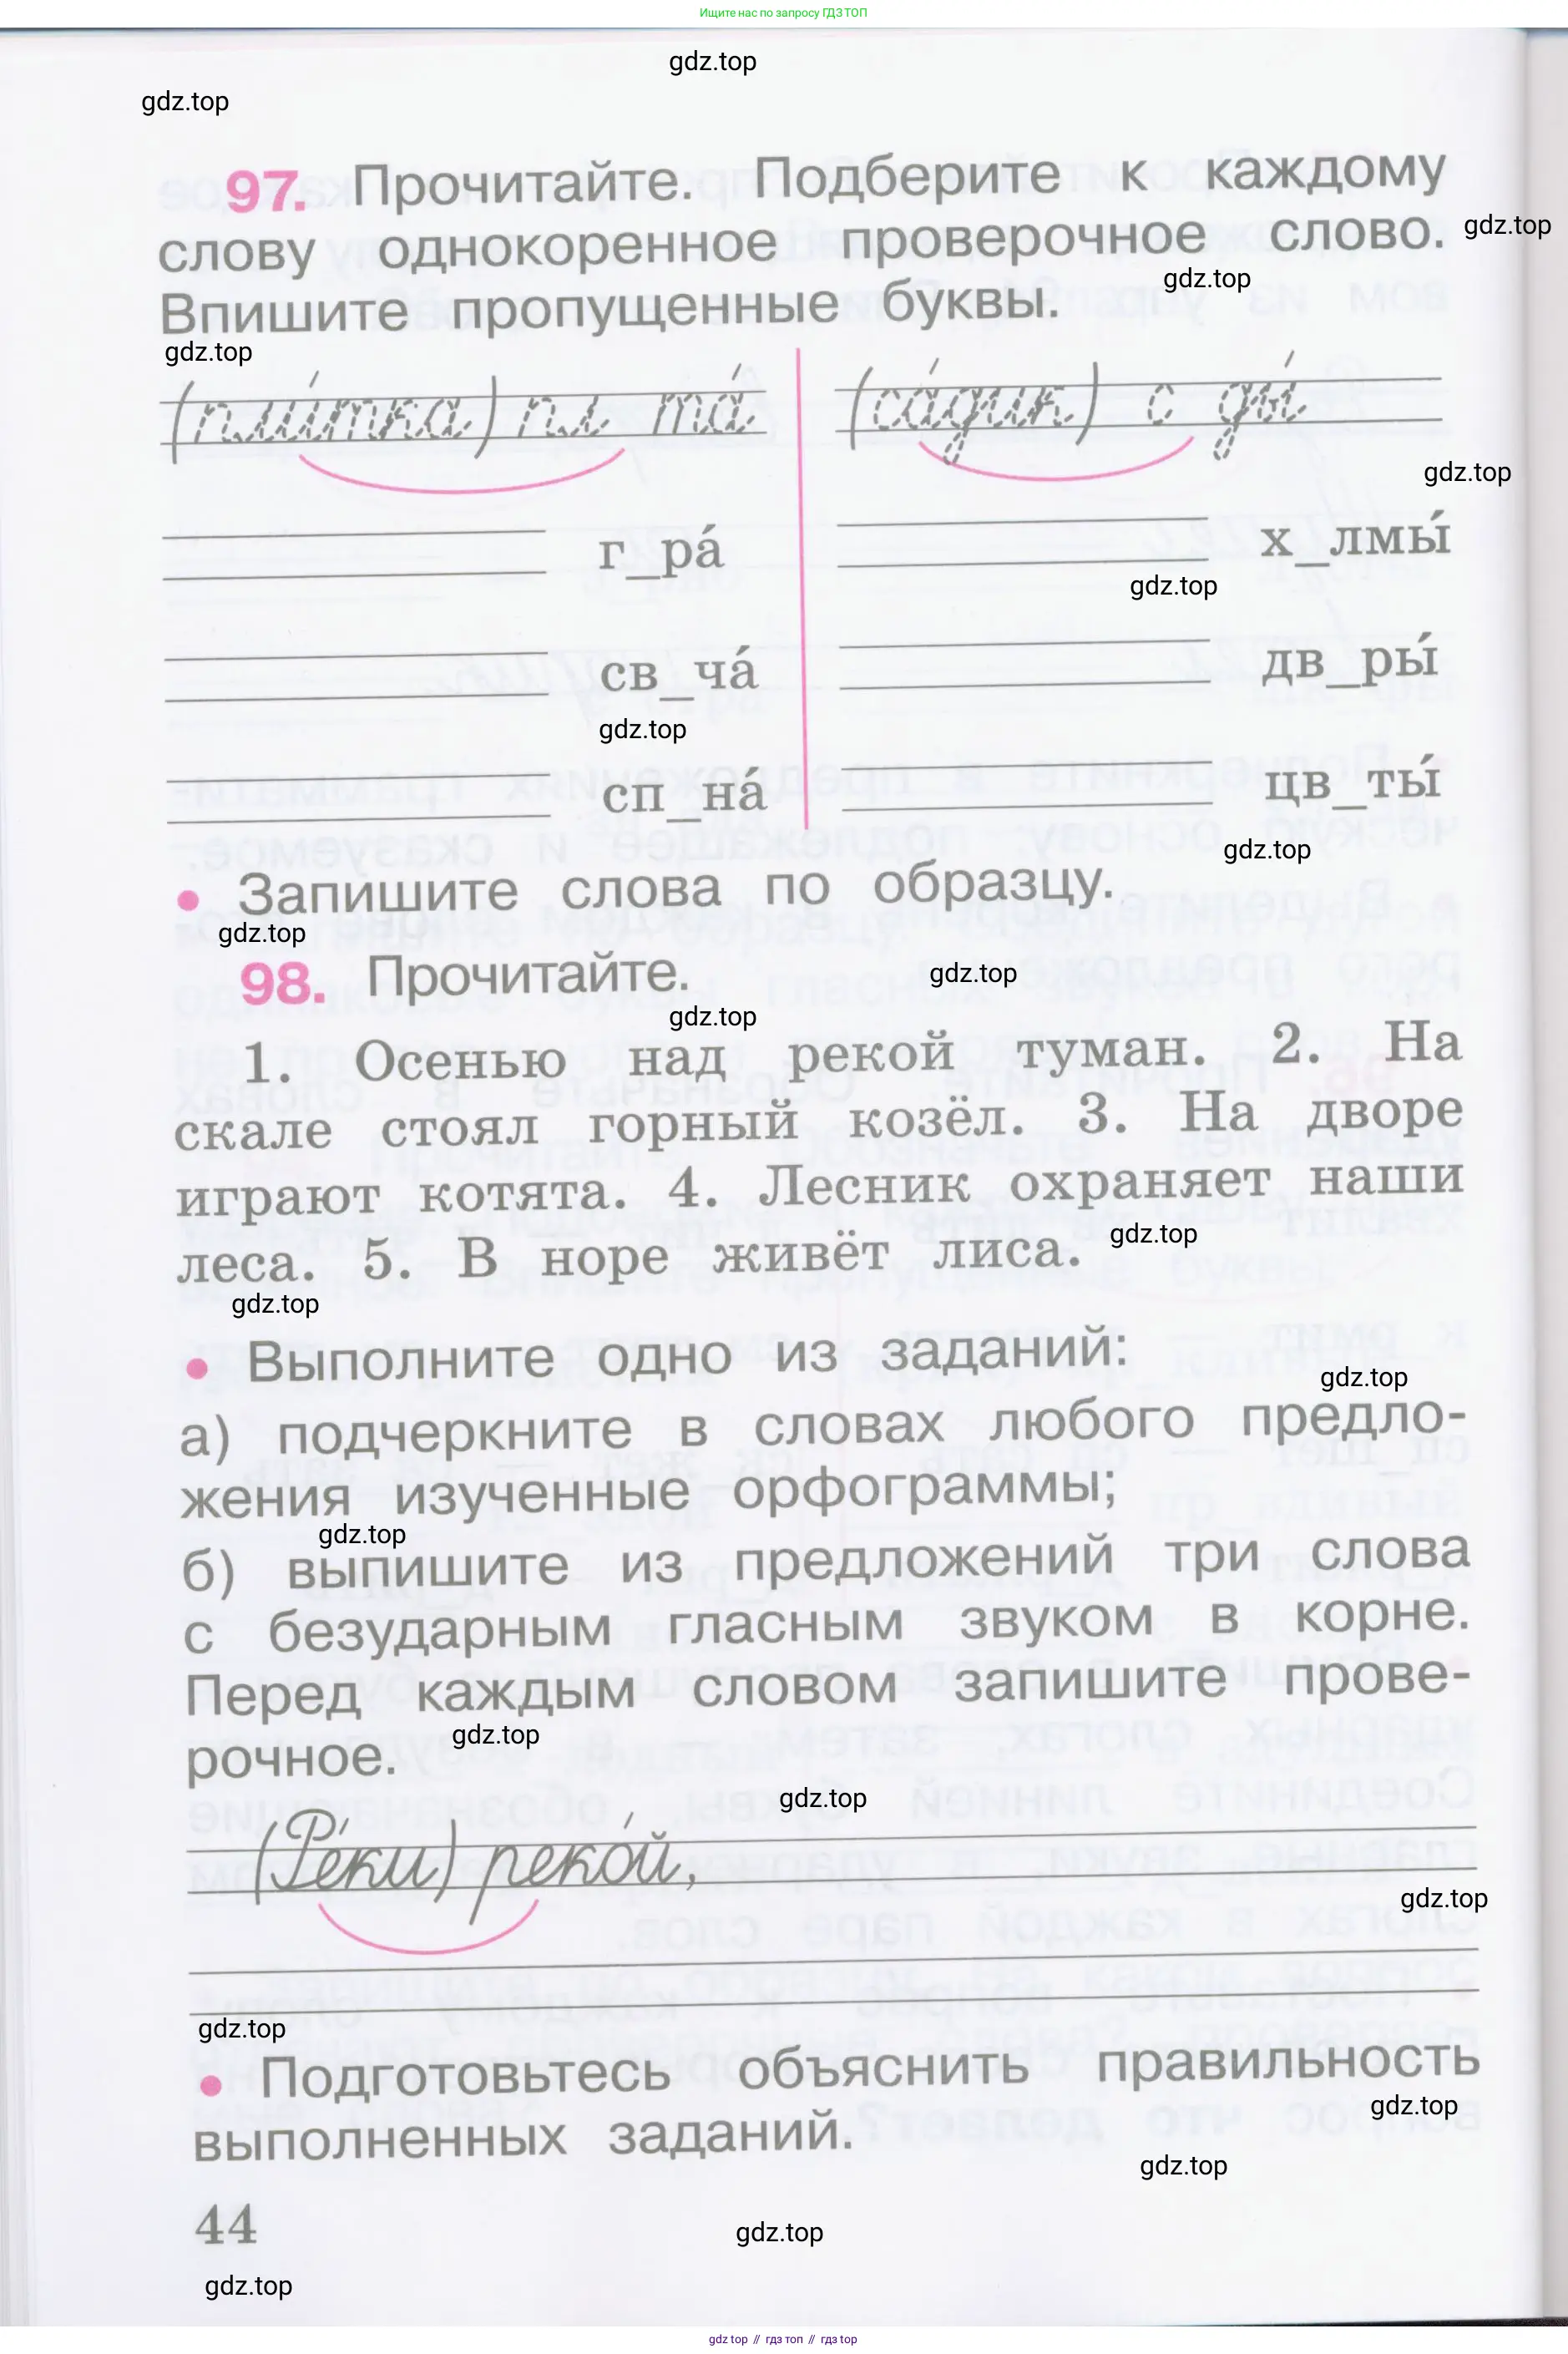 Ищите нас по запросу ГДЗ ТОП
gdz.top
gdz.top
97. Прочитайте. Подберите к каждому
слову однокоренное проверочное слово.
gdz.top
gdz.top
Впишите пропущенные буквы.
gdz.top
(пли́тка) пл та́ (са́дик) с ды́
gdz.top
г_ра́ х_лмы́
gdz.top
св_ча́ дв_ры́
gdz.top
сп_на́ цв_ты́
gdz.top
• Запишите слова по образцу.
gdz.top
98. Прочитайте.
gdz.top
gdz.top
1. Осенью над рекой туман. 2. На
скале стоял горный козёл. 3. На дворе
играют котята. 4. Лесник охраняет наши
леса. 5. В норе живёт лиса.
gdz.top
gdz.top
• Выполните одно из заданий:
gdz.top
а) подчеркните в словах любого предло-
жения изученные орфограммы;
gdz.top
б) выпишите из предложений три слова
с безударным гласным звуком в корне.
Перед каждым словом запишите прове-
gdz.top
рочное.
gdz.top
(Ре́ки) реко́й,
gdz.top
gdz.top
• Подготовьтесь объяснить правильность
gdz.top
выполненных заданий.
gdz.top
44
gdz.top
gdz.top
gdz top // гдз топ // гдз top